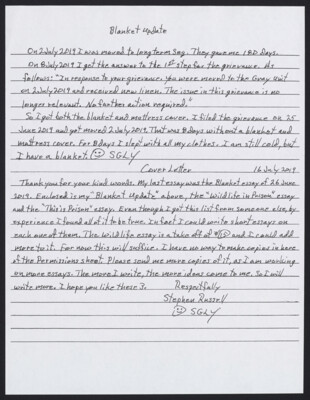 Blanket Update
On 2 July 2019 I was moved to longterm Seg. They gave me 180 days.
On 8 July 2019 I got the answer to the 1st step for the grievance. As
follows: "In response to your grievance, you were moved to the Gray Unit
on 2 July 2019 and received new linen. The issue in this grievance is no
longer relevant. No further action required."
So I got both the blanket and mattress cover. I filed the grievance on 25
June 2019 and got moved 2 July 2019. That was 8 days without a blanket and
mattress cover. For 8 days I slept with all my clothes. I am still cold, but
I have a blanket. SGLY
Cover Letter 16 July 2019
Thank you for your kind words. My last essay was the Blanket essay of 26 June
2019. Enclosed is my "Blanket Update" above, the "Wildlife in Prison" essay
and the "This is Prison" essay. Even though I got this list form someone else, by
experience I found all of it to be true. In fact I could write short essays on
each one of them. The Wildlife essay is a take off of and I could add
more to it. For now this will suffice. I have no way to make copies in here
of the Permissions sheet. Please send me more copies of it, as I am working
on more essays. The more I write, the more ideas come to me. So I will
write more. I hope you like these 3. Respectfully
Stephen Russell
SGLY